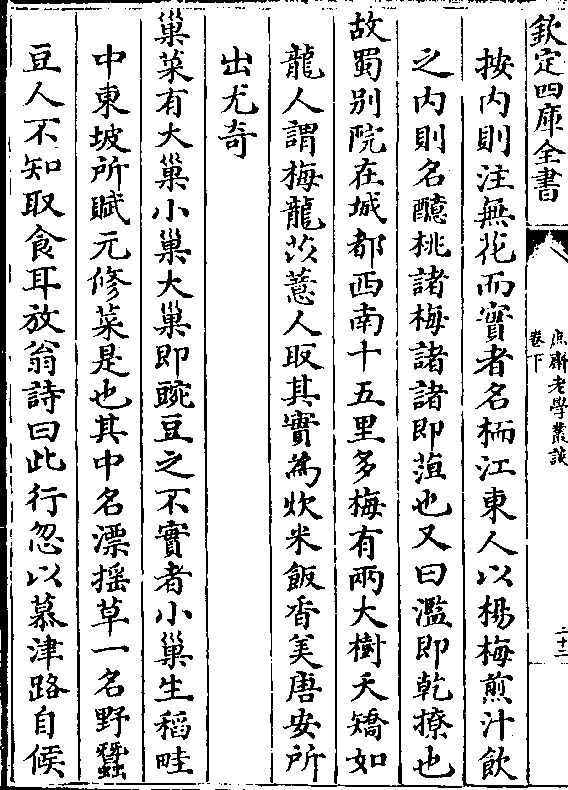 欽定四庫全書
庶齋老學叢談
卷下
二十二
按内則注無花而實者名栭江東人以楊梅煎汁飲
之内則名醷桃諸梅諸諸即菹也又曰濫即乾䕩也
故蜀别院在城都西南十五里多梅有兩大樹夭矯如
龍人謂梅龍茨薏人取其實為炊米飯香美唐安所
出尤奇
巢菜有大巢小巢大巢即豌豆之不實者小巢生稻畦
中東坡所賦元修菜是也其中名漂摇草一名野蠶
豆人不知取食耳放翁詩曰此行忽以慕津路自候